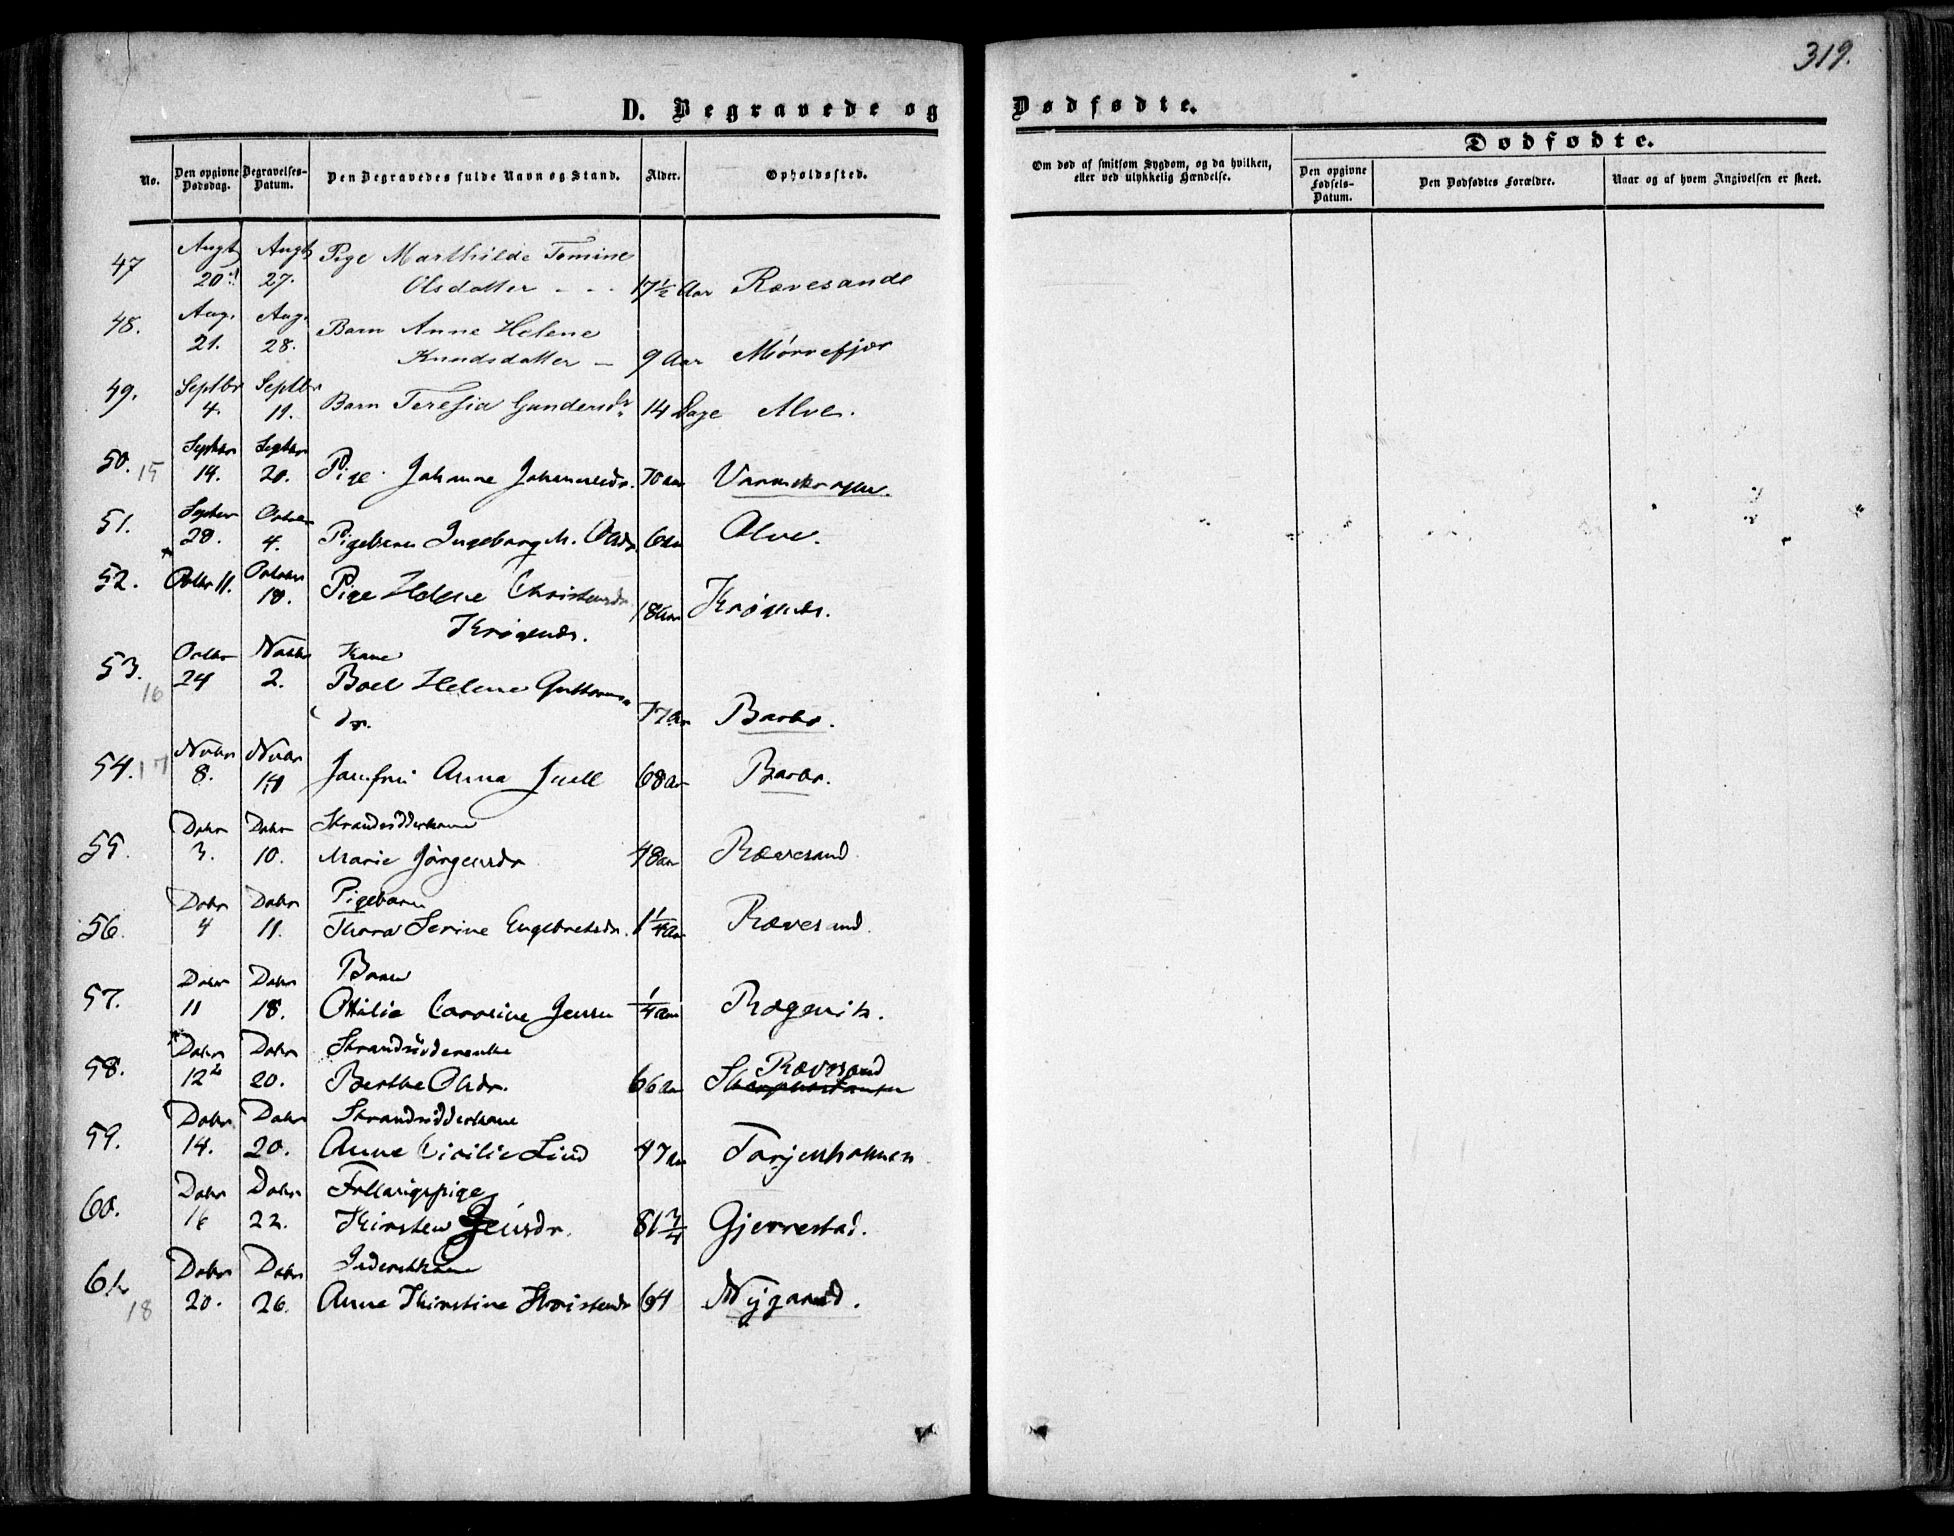 319.
D. Begravede og Dødfødte.
No.
Den opgivne Dødsdag.
Begravelses-Datum.
Den Begravedes fulde Navn og Stand.
Alder.
Opholdssted.
Om død af smitsom Sygdom, og da hvilken,
eller ved ulykkelig Hændelse.
Dødfødte.
Den opgivne Fødsels-Datum.
Den Dødfødtes Forældre.
Naar og af hvem Angivelsen er skeet.
47 Augt Augt Pige Marthilde Tomine
20 27. Olsdatter - - 17½ Aar Rævesande
48. Aug. Aug. Barn Anne Helene
21. 28. Knudsdatter - 9 Aar Mørrefjær
49. Septbr Septbr
4. 11. Barn Teresia Gundersdr 14 Dage Alve.
50. 15 Septbr Septbr
14. 20. Pige Johanne Johannesdr. 70 aar
51. Septbr Octobr
28. 4. Pigebarn Ingeborg M. Olsdr. 6 aar Alve.
52. Octbr 11. Octobr
18. Pige Helene Christensdr
Krøgenæs. 18 Aar Krøgenæs.
53. 16 Octbr Novbr Kone
24 2. Boel Helene Guttorms-
dr. 77 ar Barbo.
54. 17 Novbr Novbr
8. 14 Jomfru Anna Juell 68 ar Barbo.
55. Decbr Decbr Strandsidderkone
3. 10. Marie Jørgensdr 48 aar Rævesand.
56. Decbr Decbr Pigebarn
4 11. Thora Serine Engebretsdr. 1¼ aar Rævesand.
57. Decbr Decbr Barn
11 18. Ottilie Caroline Jensen ¼ aar Rægevik.
58. Decbr Decbr Strandsidderenke
12 20. Berthe Olsdr. 66 aar Rævesand
59. Decbr Decbr Strandsidderkone
14. 20. Anne Cicilie Lind 47 aar Torjusholmen
60. Decbr Decbr Follaugspige
16 22. Kirsten Jensdr. 81¾ Gjerrestad.
61. 18 Decbr Decbr
20. 26. Anne Kirstine Christensdr 64 Nygaard.